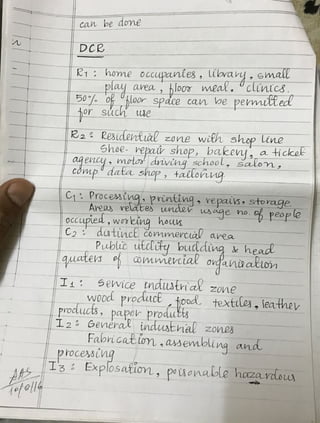 can be done
DCR
R1 : home occupanies, library, small
play area, floor meal. clinics.
50% of floor space can be permitted
for such use
R2 : Residential zone with shop line
Shoe repair shop, bakery, a ticket
agency, motor driving school, salon,
comp data shop, tailoring
C1 : Processing, printing, repairs, storage
Areas relates under usage no. of people
occupied, working hours
C2 : distinct commercial area
Public utility building & head
quaters of commercial organisation
I1 : Service industrial zone
wood product, food, textiles, leather
products, paper products
I2 : General industrial zones
Fabrication, assembling and
processing
I3 : Explosation, poisonable hazardous
AAS